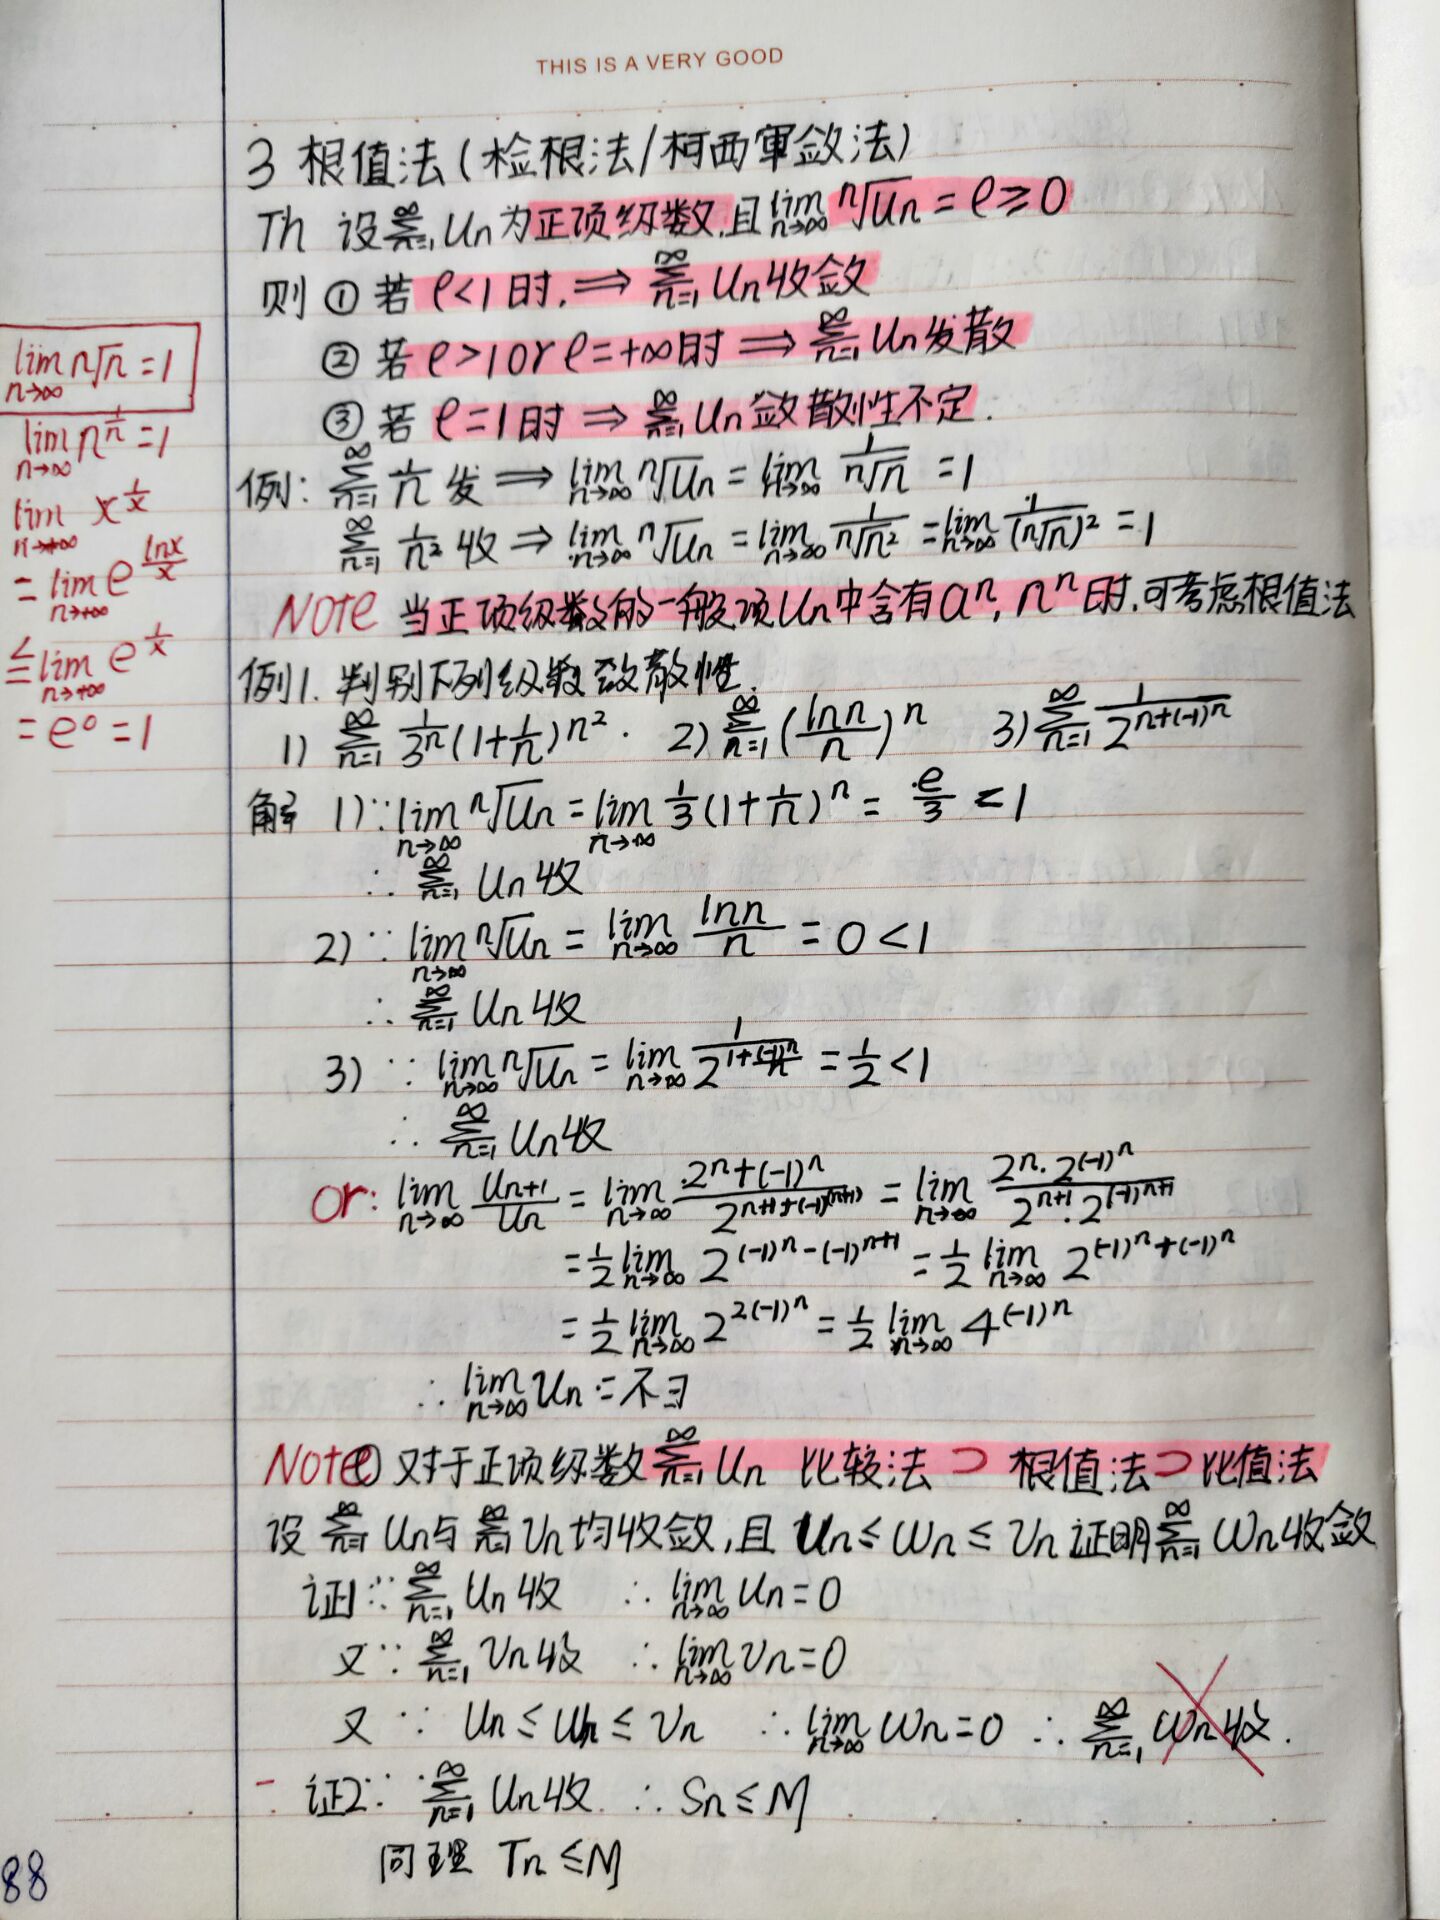 THIS IS A VERY GOOD
3 根值法(检根法/柯西审敛法)
Th 设∑_{n=1}^∞ Un为正项级数,且lim_{n→∞} ⁿ√Un = ρ ≥ 0
则 ① 若 ρ<1时,⇒ ∑_{n=1}^∞ Un收敛
② 若 ρ>1 or ρ=+∞时 ⇒ ∑_{n=1}^∞ Un发散
③ 若 ρ=1时 ⇒ ∑_{n=1}^∞ Un敛散性不定.
例: ∑_{n=1}^∞ 1/n 发 ⇒ lim_{n→∞} ⁿ√Un = lim_{n→∞} 1/ⁿ√n = 1
∑_{n=1}^∞ 1/n² 收 ⇒ lim_{n→∞} ⁿ√Un = lim_{n→∞} 1/ⁿ√n² = lim_{n→∞} 1/(ⁿ√n)² = 1
Note 当正项级数的一般项Un中含有aⁿ, nⁿ时,可考虑根值法
例1. 判别下列级数敛散性.
1) ∑_{n=1}^∞ 1/3ⁿ (1+1/n)^{n²}. 2) ∑_{n=1}^∞ (lnn/n)ⁿ 3) ∑_{n=1}^∞ 1/2^{n+(-1)^n}
解 1) ∵ lim_{n→∞} ⁿ√Un = lim_{n→∞} 1/3 (1+1/n)ⁿ = e/3 < 1
∴ ∑_{n=1}^∞ Un收
2) ∵ lim_{n→∞} ⁿ√Un = lim_{n→∞} lnn/n = 0 < 1
∴ ∑_{n=1}^∞ Un收
3) ∵ lim_{n→∞} ⁿ√Un = lim_{n→∞} 1/2^{1+(-1)^n/n} = 1/2 < 1
∴ ∑_{n=1}^∞ Un收
or: lim_{n→∞} U_{n+1}/Un = lim_{n→∞} 2^{n+(-1)^n}/2^{n+1+(-1)^{(n+1)}} = lim_{n→∞} 2ⁿ·2^{(-1)^n}/2^{n+1}·2^{(-1)^{n+1}}
= 1/2 lim_{n→∞} 2^{(-1)^n-(-1)^{n+1}} = 1/2 lim_{n→∞} 2^{(-1)^n+(-1)^n}
= 1/2 lim_{n→∞} 2^{2(-1)^n} = 1/2 lim_{n→∞} 4^{(-1)^n}
∴ lim_{n→∞} Un = 不∃
Note① 对于正项级数∑_{n=1}^∞ Un 比较法 ⊃ 根值法 ⊃ 比值法
设 ∑_{n=1}^∞ Un与∑_{n=1}^∞ Vn均收敛,且 Un ≤ Wn ≤ Vn 证明∑_{n=1}^∞ Wn收敛
证1 ∵ ∑_{n=1}^∞ Un收 ∴ lim_{n→∞} Un = 0
又∵ ∑_{n=1}^∞ Vn收 ∴ lim_{n→∞} Vn = 0
又 ∵ Un ≤ Wn ≤ Vn ∴ lim_{n→∞} Wn = 0 ∴ ∑_{n=1}^∞ Wn收.
证2 ∵ ∑_{n=1}^∞ Un收. ∴ Sn ≤ M
同理 Tn ≤ M
lim_{n→∞} ⁿ√n = 1
lim_{n→∞} n^{1/n} = 1
lim_{n→+∞} x^{1/x}
= lim_{n→+∞} e^{lnx/x}
≟ lim_{n→+∞} e^{1/x}
= e⁰ = 1
88